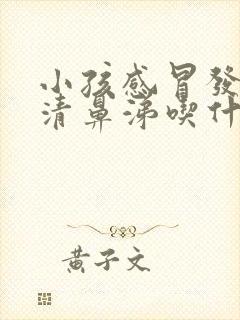 小孩感冒發
清鼻涕喫什
黃子文